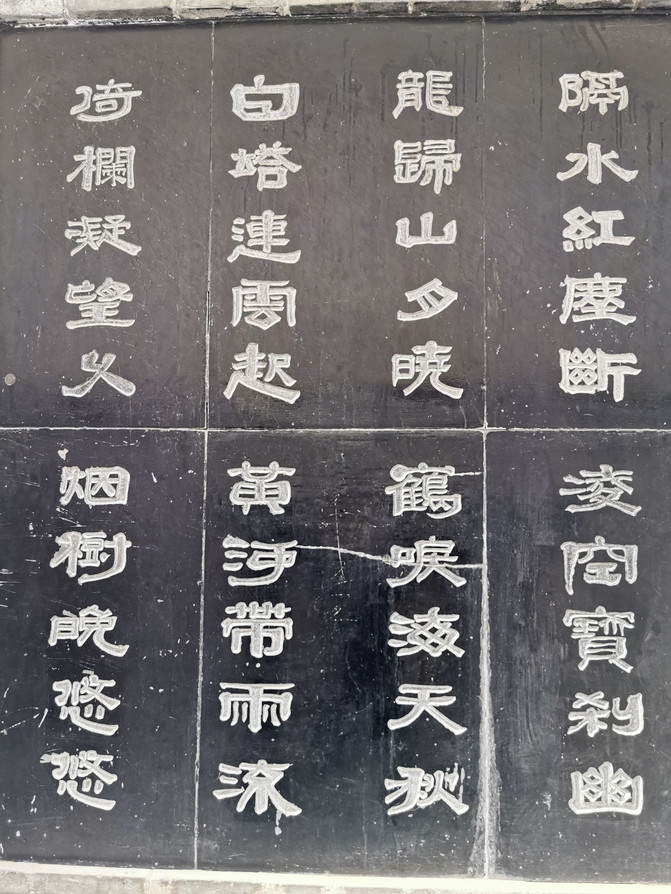 隔水紅塵斷凌空寶刹幽
龍歸山月暁鶴唳海天秋
白塔連雲起黄河帶雨流
倚欄凝望久烟樹晚悠悠